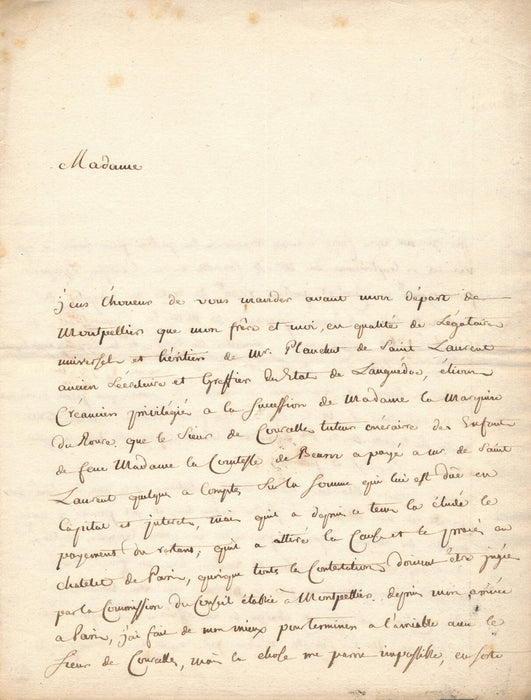 Madame
j'eus l'honeur de vous mander avant mon départ de
Montpellier que mon frère et moi, en qualité de Légataire
universel et héritier de Mr. Planchut de Saint Laurent
ancien Sécrétaire et Greffier du Etat de Languedoc, étions
Créanciers privilégiés a la sucession de Madame la Marquise
du Roure, que le Sieur de Courcelles tuteur onéraire des Enfants
de feue Madame la Comtesse de Bearn a payé a mr. de Saint
Laurent quelque a comptes sur la somme qui lui est düe en
capital et interets, mais qu'il a depuis ce tems la éludé le
payement du restant, qu'il a attiré la Cause et le procès au
chatelet de Paris, quoique toute la Contestation dourait être jugée
par la Commission du Conseil établie à Montpellier. depuis mon arrivée
a Paris, j'ai fait de mon mieux pour terminer a l'amiable avec le
Sieur de Courcelles, mais la chose me paroit impossible, en sorte